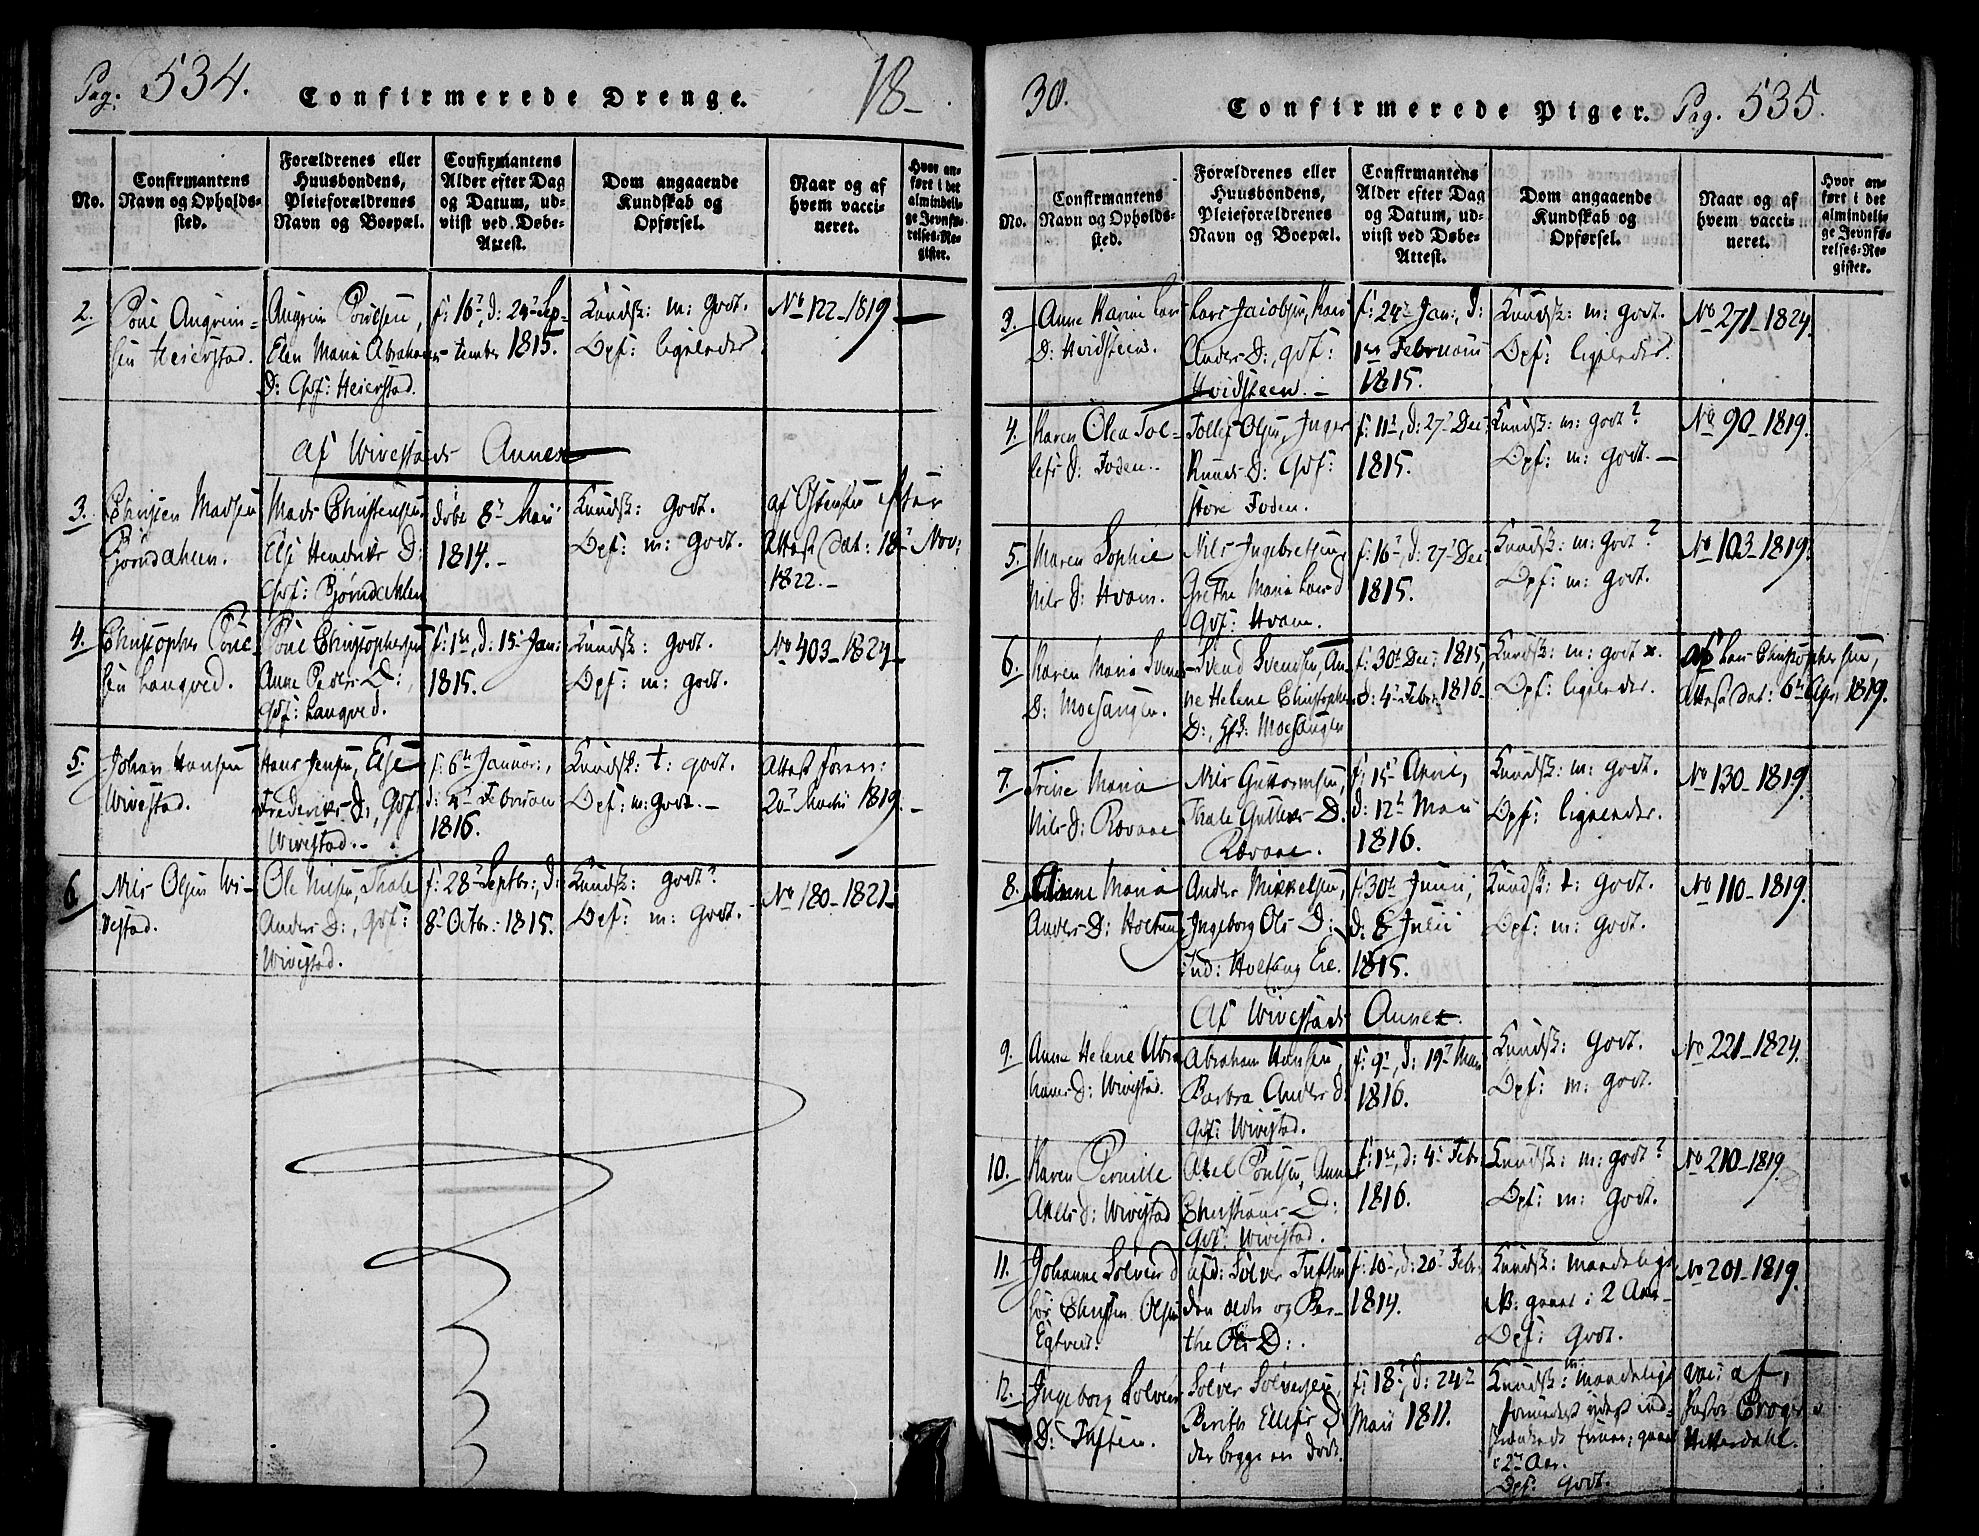 Pag: 534.
Confirmerede Drenge.
18-
No.
Confirmantens
Navn og Opholds-
sted.
Forældrenes eller
Huusbondens,
Pleieforældrenes
Navn og Boepæl.
Confirmantens
Alder efter Dag
og Datum, ud-
viist ved Døbe-
Attest.
Dom angaaende
Kundskab og
Opførsel.
Naar og af
hvem vacci-
neret.
Hvor an-
ført i det
almindeli-
ge Jevnfø-
relses-Re-
gister.
2.
Poul Angrim-
sen Heierstad.
Angrim Poulsen,
Elen Maria Abrahams
D: Gdf: Heierstad.
f: 16?, d: 24? Sep-
tember 1815.
Kundsk: m: godt.
Opf: ligeledes.
No 122-1819.
af Wivestads Annex
3.
Christen Madsen
Bjørndahlen.
Mads Christensen,
Else Hendriks D:
Gdf: Bjørndahlen
døbt 8? Maii
1814.-
Kundsk: godt.
Opf: m: godt.
af Ostensen efter
Attest dat: 18? Nov:
1822.-
4.
Christopher Poul-
sen Langved.
Poul Christophersen
Anne Peders D:,
Gdf: Langved.
f: 1ste, d: 15? Jan:
1815.
Kundsk: godt.
Opf: m: godt.
No 403-1824-
5.
Johan Hansen
Wivestad.
Hans Jensen, Else
Frederiks D:, Gdf:
Wivestad.-
f: 6te Januar:,
d: 4? Februar
1816.
Kundsk: t: godt.
Opf: m: godt.-
Attest foreu:
20? Martii 1819.-
6.
Nils Olsen Wi-
vestad.
Ole Nilsen, Thale
Anders D:, Gdf:
Wivestad.
f: 28? Septbr:, d:
8? Octbr: 1815.
Kundsk: godt?
Opf: m: godt.
No 180-1821-
30.
Confirmerede Piger.
Pag. 535.
No.
Confirmantens
Navn og Opholds-
sted.
Forældrenes eller
Huusbondens,
Pleieforældrenes
Navn og Boepæl.
Confirmantens
Alder efter Dag
og Datum, ud-
viist ved Døbe-
Attest.
Dom angaaende
Kundskab og
Opførsel.
Naar og af
hvem vacci-
neret.
Hvor an-
ført i det
almindeli-
ge Jevnfø-
relses-Re-
gister.
3.
Anne Karine Lars
D: Hvidsteen.
Lars Jacobsen, Kari
Anders D:, Gdf:
Hvidsteen.-
f: 24? Jan:, d:
1ste Februarii
1815.
Kundsk: m: godt.
Opf: ligeledes.
No 271-1824.
4.
Karen Olea Tol-
lefs D: Foden.
Tollef Olsen, Inger
Knuds D: Gdf:
store Foden.
f: 11?, d: 27? Dec:
1815.
Kundsk: m: godt?
Opf: m: godt.-
No 90-1819.
5.
Maren Sophie
Nils D: Hvam.
Nils Ingebretsen
Grethe Maria Lars D
Gdf: Hvam.
f: 16?, d: 27? Dec:
1815.
Kundsk: m: godt?
Opf: m: godt.
No 103-1819.
6.
Karen Maria Svends
D: Moesangen.
Svend Svendsen, An-
ne Helene Christophers
D:, Moesangen
f: 30te Dec: 1815,
d: 4? Febr: 1816-
Kundsk: m: godt.
Opf: ligeledes.
af Lars Christophersen,
Attest dat: 6te Apr: 1819.
7.
Trine Maria
Nils D: Rævaae
Nils Guttormsen,
Thale Gullers D:
Rævaae.
f: 15? April,
d: 12te Maii
1816.
Kundsk: m: godt.
Opf: ligeledes.
No 130-1819.
8.
Anne Maria
Anders D: Holtung
Anders Mikkelsen,
Ingeborg Ols D:
Ind: Holtung Eie.
f: 30te Junii,
d: 8? Julii
1815.
Kundsk: t: godt.
Opf: m: godt.
No 110-1819.
Af Wivestads Annex.
9.
Anne Helene Abra-
hams D: Wivestad.
Abraham Hansen,
Barbra Anders D:
Gdf: Wivestad.
f: 9?, d: 19? Maii
1816.
Kundsk: godt.
Opf: m: godt.
No 221-1824.
10.
Karen Pernille
Axels D: Wivestad
Axel Poulsen, Anne
Christians D:
Gdf: Wivestad.
f: 1ste, d: 4? Febr:
1816.
Kundsk: m: godt?
Opf: m: godt.
No 210-1819.
11.
Johanne Solvers D
hos Christen Olsen
Egtved.
afd: Solver Tuften
den ældre og Ber-
the Ols D:.
f: 10?, d: 20? Febr:
1814.
Kundsk: maadeligt
NB: gaaet i 2 Aar-
Opf: godt.
No 201-1819.
12.
Ingeborg Solvers
D: Tuften.
Solver Solversen,
Berthe Ellefs D:
der begge ere død.
f: 18?, d: 24?
Maii 1811.
Kundsk: m: maadeligt
formedelst vidst ind-
skrænkede Evner; gaaet
i 2? Aar.
Opf: godt.
vac: af,
Pastor Crøger i
Hitterdahl.